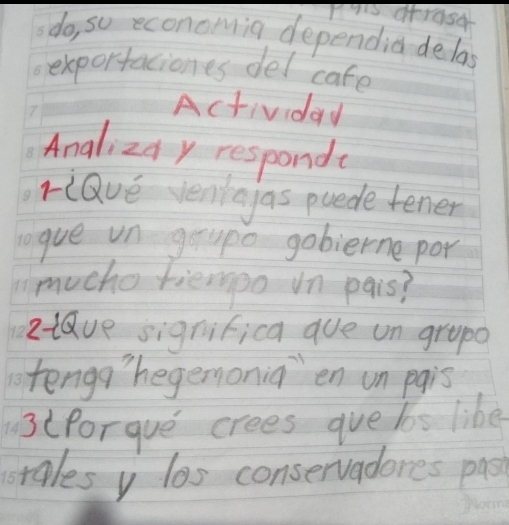 país atrasa
do, su economia dependia de las
exportaciones del cafe
Actividad
Analiza y responde
1-¿Qué ventajas puede tener
que un grupo gobierne por
mucho tiempo un pais?
2-¿Que significa que un grupo
tenga "hegemonia" en un pais
3¿Porqué crees que los libe-
rales y los conservadores pasa